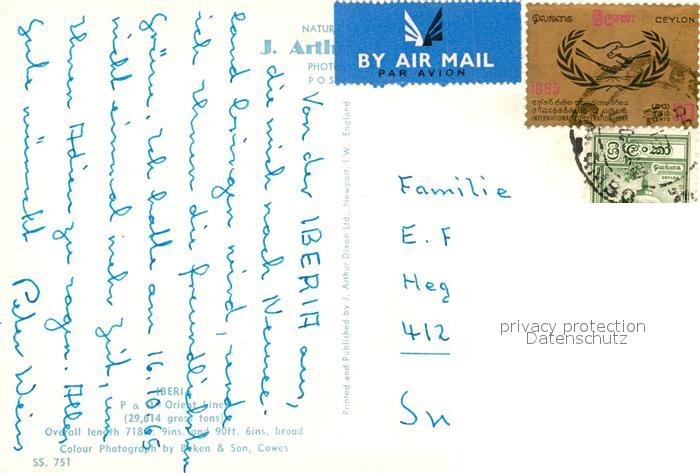 NATUR
J. Arth
PHOTO
POS
BY AIR MAIL
PAR AVION
ලංකා
இலங்கை
CEYLON
1965
INTERNATIONAL CO-OPERATION YEAR
50
CENTS
ශ්‍රී ලංකා
இலங்கை
CEYLON
Von der IBERIA aus,
die mich nach Neusee-
land bringen wird, sende
ich Ihnen die freundlichsten
Grüsse. Ich hatte am 16.10.65
nicht einmal mehr Zeit, um
Ihnen Adieu zu sagen. Alles
Gute wünscht
Peter
Familie
E. F
Heg
412
Sn
Printed and Published by J. Arthur Dixon Ltd., Newport, I.W., England
IBERIA
P & O-Orient Line
(29,614 gross tons)
Overall length 718ft. 9ins. and 90ft. 6ins. broad
Colour Photograph by Beken & Son, Cowes
SS. 751
privacy protection
Datenschutz